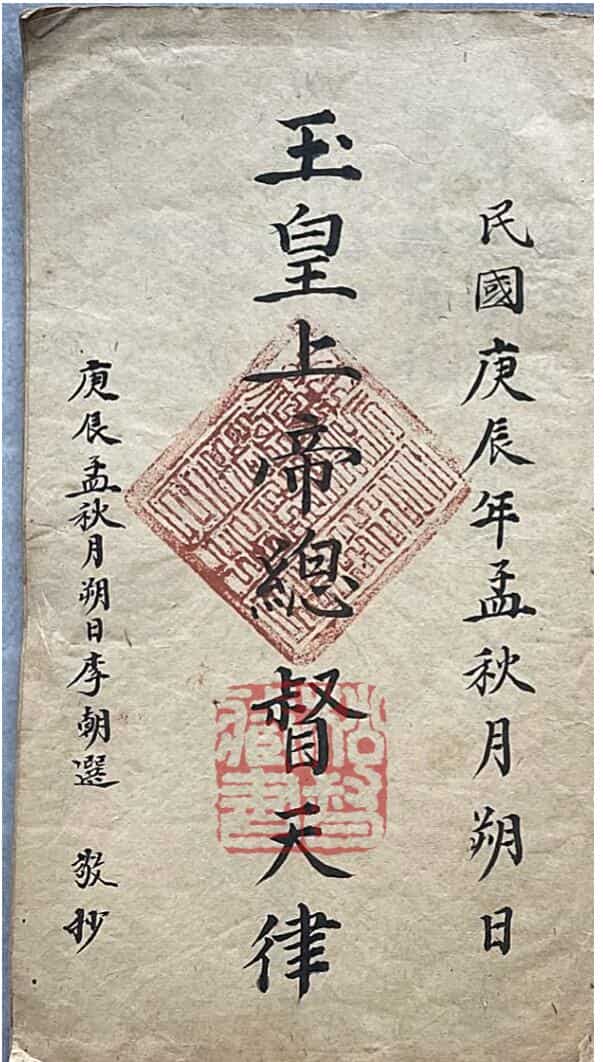 民國庚辰年孟秋月朔日
玉皇上帝總督天律
庚辰孟秋月朔日李朝選 敬抄